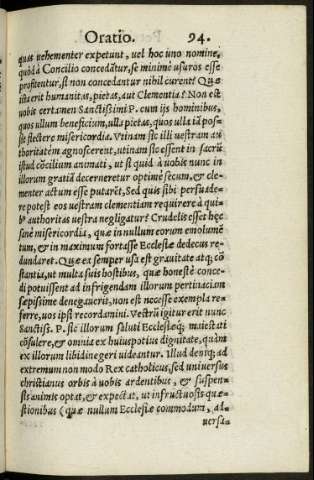 Oratio. 94.
quæ vehementer expetunt, vel hoc uno nomine,
quòd à Concilio concedãtur, se minimè usuros esse
profitentur, si non concedantur nihil curent? Quæ
ista erit humanitas, pietas, aut Clementia? Non est
vobis certamen Sanctissimi P. cum ijs hominibus,
quos ullum beneficium, ulla pietas, quos ulla tã pos-
sit flectere misericordia. Vtinam sic illi vestram au
thoritatẽ agnoscerent, utinam sic essent in sacrũ
istud cõcilium animati, ut si quid à vobis nunc in
illorum gratiã decerneretur optimè secum, & cle-
menter actum esse putarẽt, Sed quis sibi persuade-
re potest eos vestram clementiam requirere à qui-
bꝰ authoritas vestra negligatur? Crudelis esset hęc
sanè misericordia, quæ in nullum eorum emolumẽ
tum, & in maximum fortasse Ecclesiæ dedecus re-
dundaret. Quæ ex semper usa est grauitate atq; cõ
stantia, ut multa suis hostibus, quæ honestè conce-
di potuissent ad infrigendam illorum pertinaciam
sæpissime denegauerit, non est necesse exempla re-
ferre, vos ipsi recordamini. Vectrũ igitur erit nunc
Sanctiss. P. sic illorum saluti Ecclesiæq; maiestati
cõsulere, & omnia ex huius potius dignitate, quàm
ex illorum libidine geri videantur. Illud deniq; ad
extremum non modo Rex catholicus, sed universus
christianus orbis à vobis ardentibus, & suspen-
sis animis optat, & expectat, ut infructuosis quæ-
stionibus (quæ nullum Ecclesiæ commodum, ad-
versa-